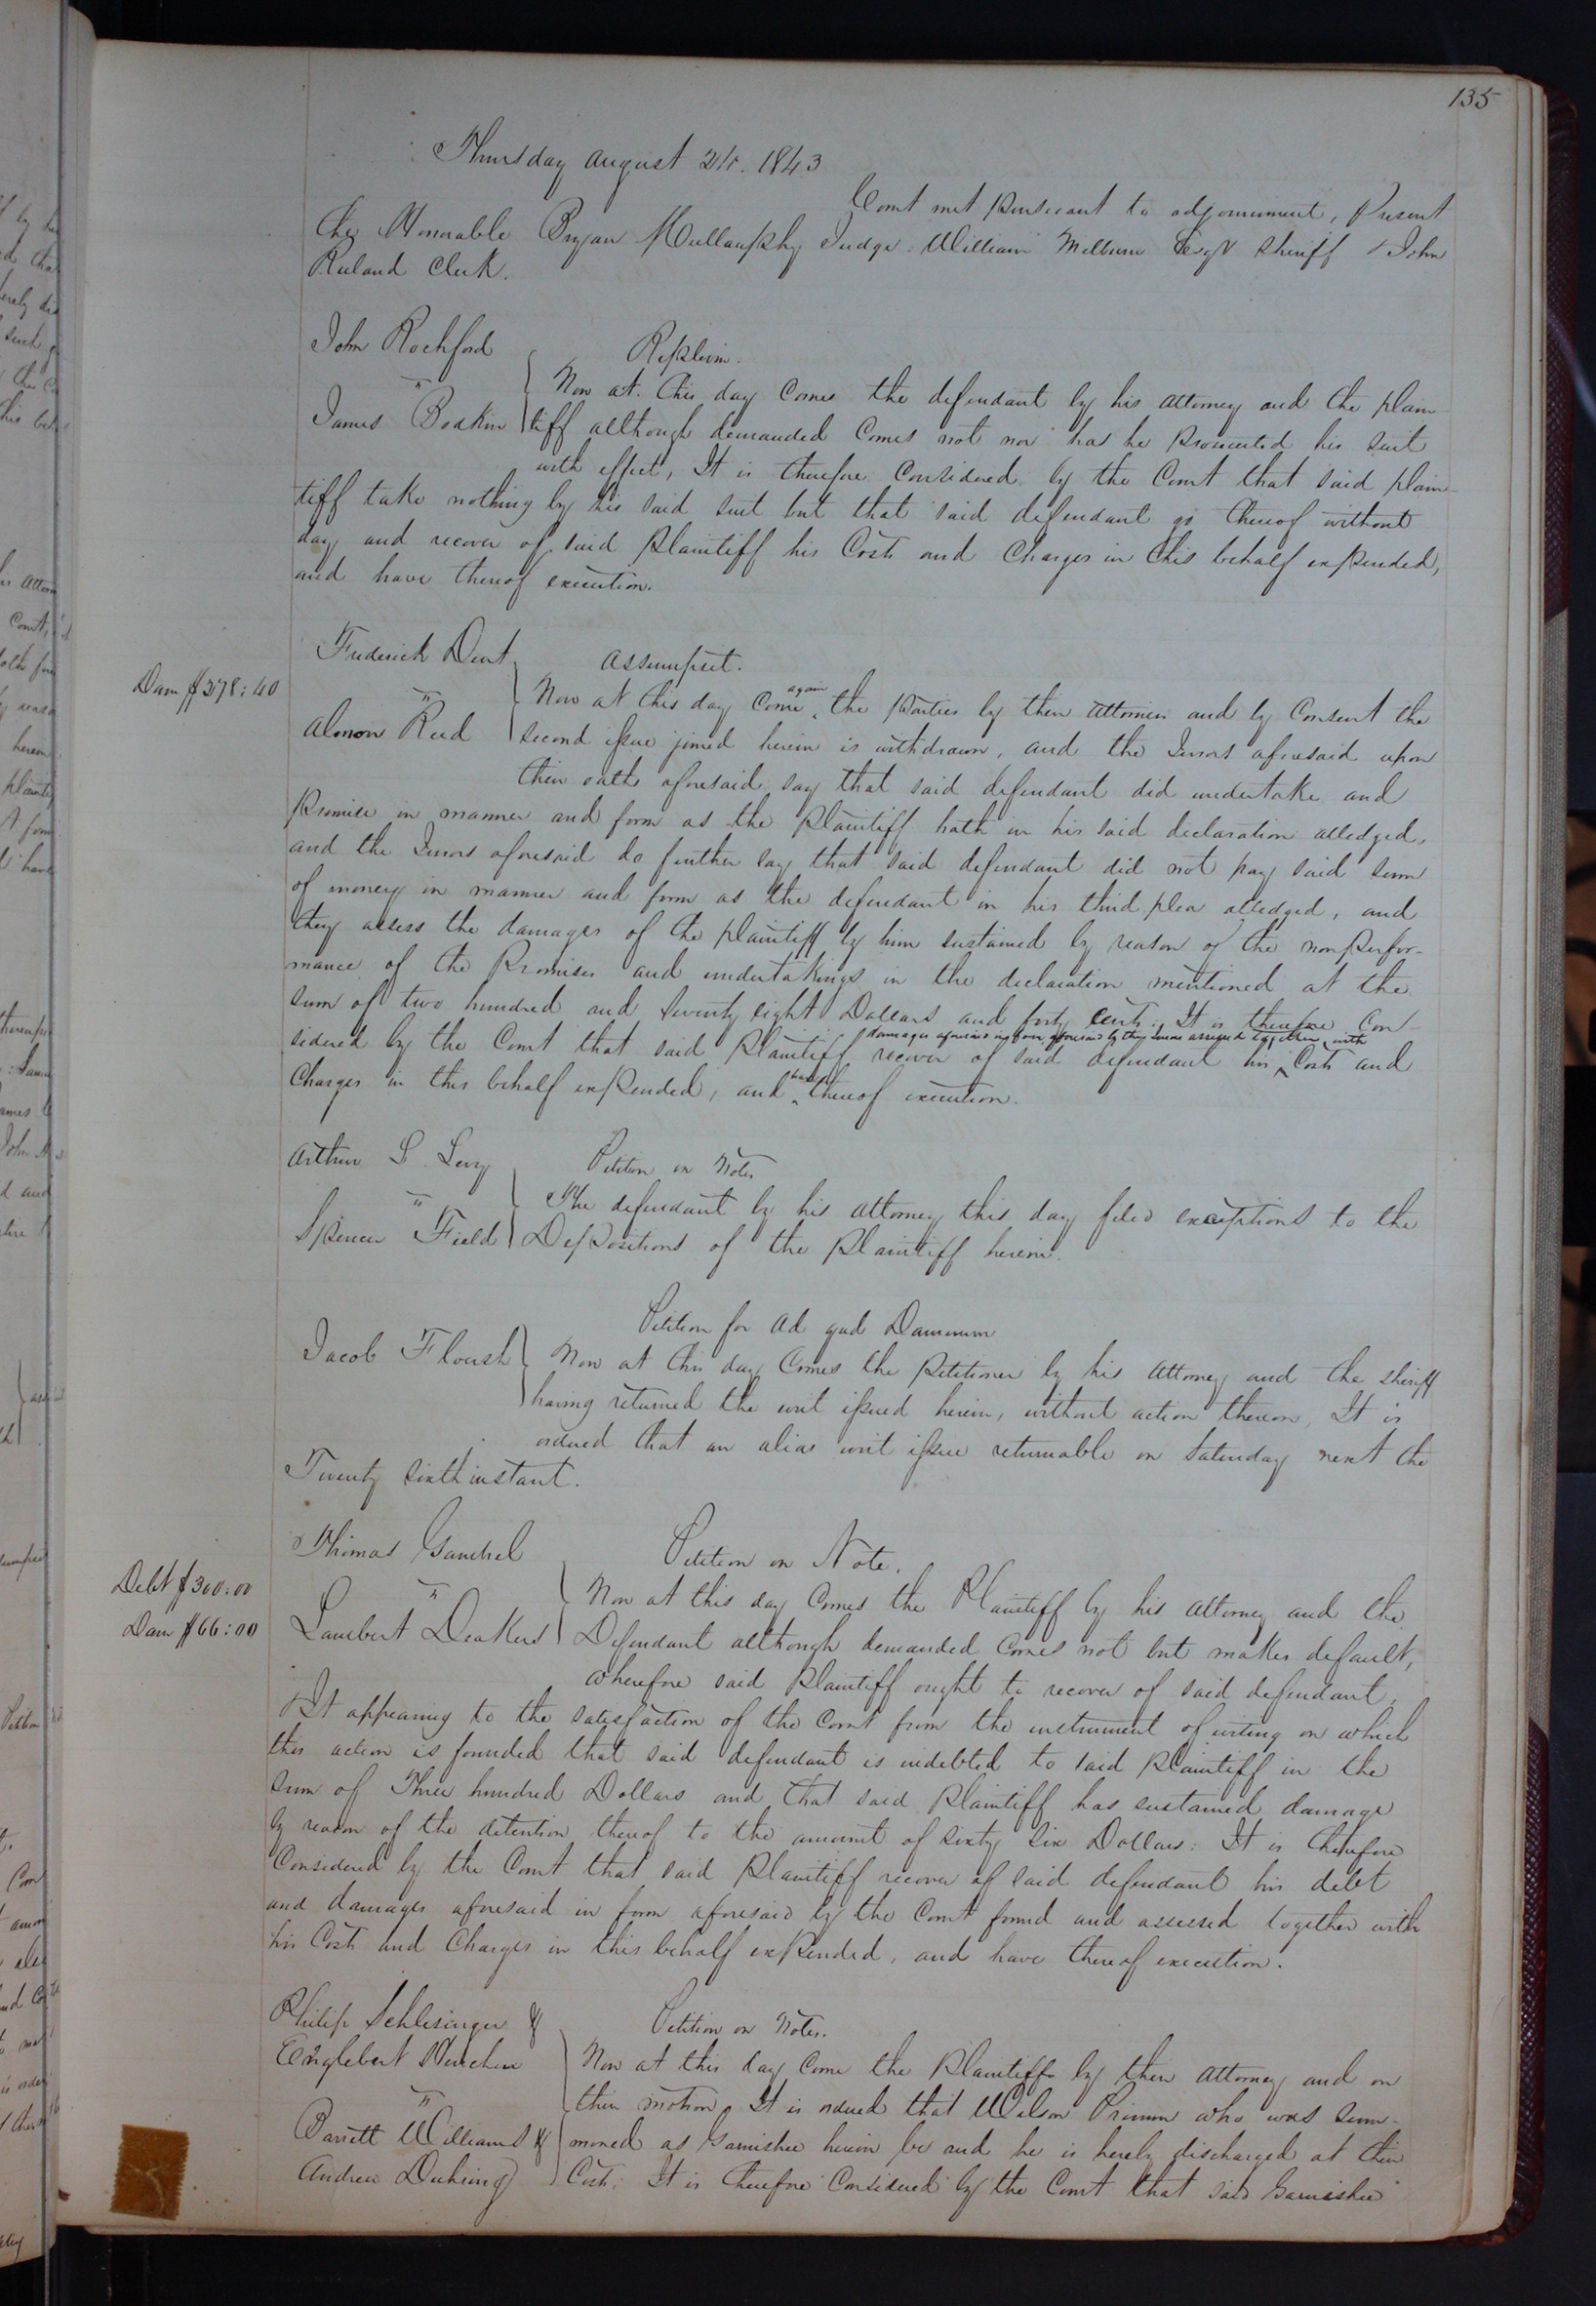 135
Thursday August 24. 1843
Court met pursuant to adjournment, Present
the Honorable Bryan Mullanphy Judge. William Milburn Esqr Sheriff & John
Ruland Clerk.
John Rochford
Replevin.
"
Now at this day Comes the defendant by his attorney and the plain-
James Boskin
tiff although demanded Comes not nor has he prosecuted his suit
with effect, It is therefore Considered by the Court that said plain-
tiff take nothing by his said suit but that said defendant go thereof without
day and recover of said Plaintiff his Costs and Charges in this behalf expended,
and have thereof execution.
Frederick Dent
Assumpsit.
Dam $278:40
"
Now at this day Come again the Parties by their Attornies and by Consent the
Almon Reed
second issue joined herein is withdrawn, and the Jurors aforesaid upon
their oaths aforesaid say that said defendant did undertake and
Promise in manner and form as the Plaintiff hath in his said declaration alledged,
and the Jurors aforesaid do further say that said defendant did not pay said sum
of money in manner and form as the defendant in his third plea alledged, and
they assess the damages of the plaintiff by him sustained by reason of the nonperfor-
mance of the Promises and undertakings in the declaration mentioned at the
sum of two hundred and seventy eight Dollars and forty cents: It is therefore Con-
sidered by the Court that said Plaintiff recover of said defendant his damages aforesaid in form aforesaid by the Jurors assessed together with Costs and
Charges in this behalf expended, and have thereof execution.
Arthur L Levy
Petition on Notes
"
The defendant by his attorney this day filed exceptions to the
Spencer Field
Depositions of the Plaintiff herein.
Petition for Ad qud Damnum
Jacob Floush
Now at this day Comes the Petitioner by his Attorney and the sheriff
having returned the writ issued herein, without action thereon, It is
ordered that an alias writ issue returnable on Saturday next the
Twenty sixth instant.
Thomas Gantrel
Petition on Note.
Debt $300:00
"
Now at this day Comes the Plaintiff by his attorney and the
Dam $66:00
Lambert Deakers
Defendant although demanded Comes not but makes default,
wherefore said Plaintiff ought to recover of said defendant,
& It appearing to the satisfaction of the Court from the instrument of writing on which
this action is founded that said defendant is indebted to said Plaintiff in the
sum of Three hundred Dollars and that said Plaintiff has sustained damage
by reason of the detention thereof to the amount of sixty six Dollars: It is therefore
Considered by the Court that said Plaintiff recover of said defendant his debt
and damages aforesaid in form aforesaid by the Court found and assessed together with
his Costs and Charges in this behalf expended, and have thereof execution.
Philip Schlesinger &
Petition on Notes.
Englebert
Now at this day Come the Plaintiffs by their attorney and on
"
their motion, It is ordered that Wilson Primm who was sum-
Barrett Williams &
moned as Garnishee herein be and he is hereby discharged at their
Andrew Duhring
Costs. It is therefore Considered by the Court that said Garnishee